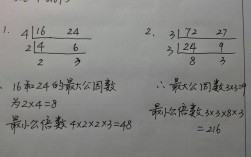 1. 4 16 24
2 4 6
2 3
16和24的最大公因数
为2×4=8
最小公倍数4×2×2×3=48
2. 3 72 27
3 24 9
8 3
∴最大公因数3×3=9
最小公倍数3×3×8×3
=216